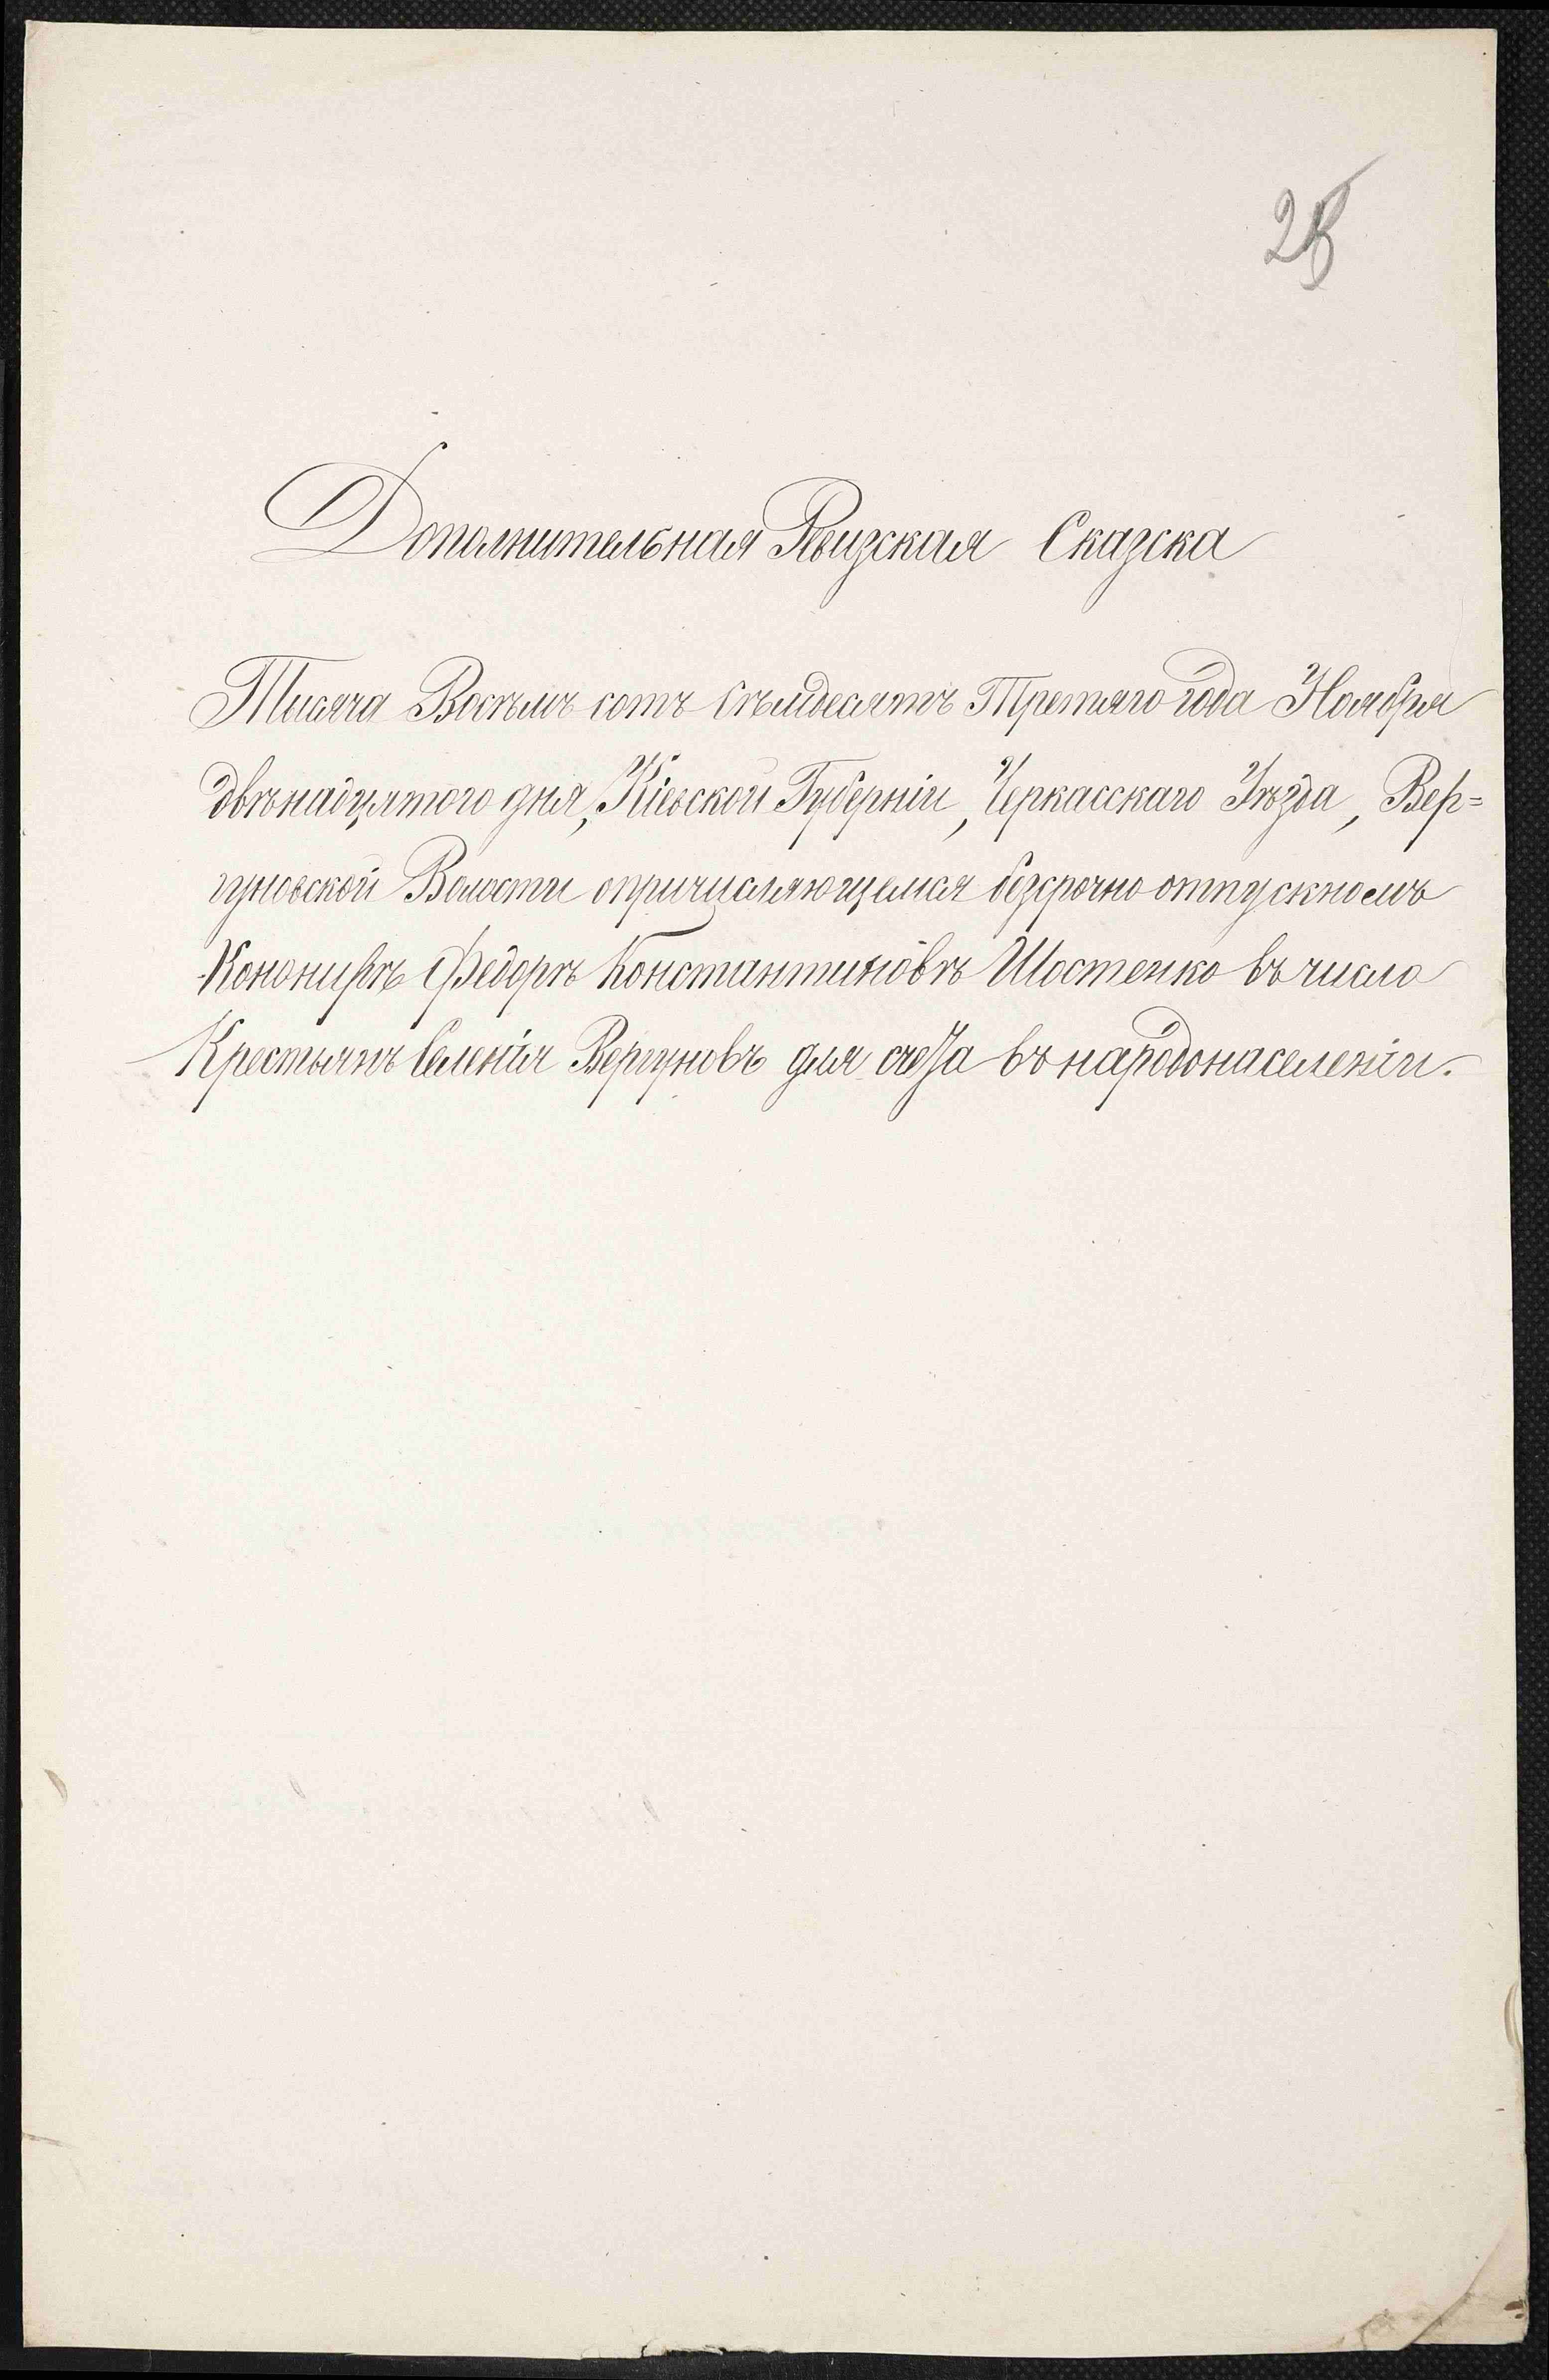 Дополнительная Ревизская Сказка
Тысяча Восѣмъ сотъ Сѣмдесятъ Третяго года Ноября
двѣнадцятого дня, Кіевской Губерніи, Черкасскаго Уѣзда, Вер=
гуновской Волости о причисляющемся безсрочно отпускномъ
Канонирѣ Федорѣ Константиновѣ Шостенко въ число
Крестьянъ Селенія Вергуновъ для счета въ народонаселеніи.